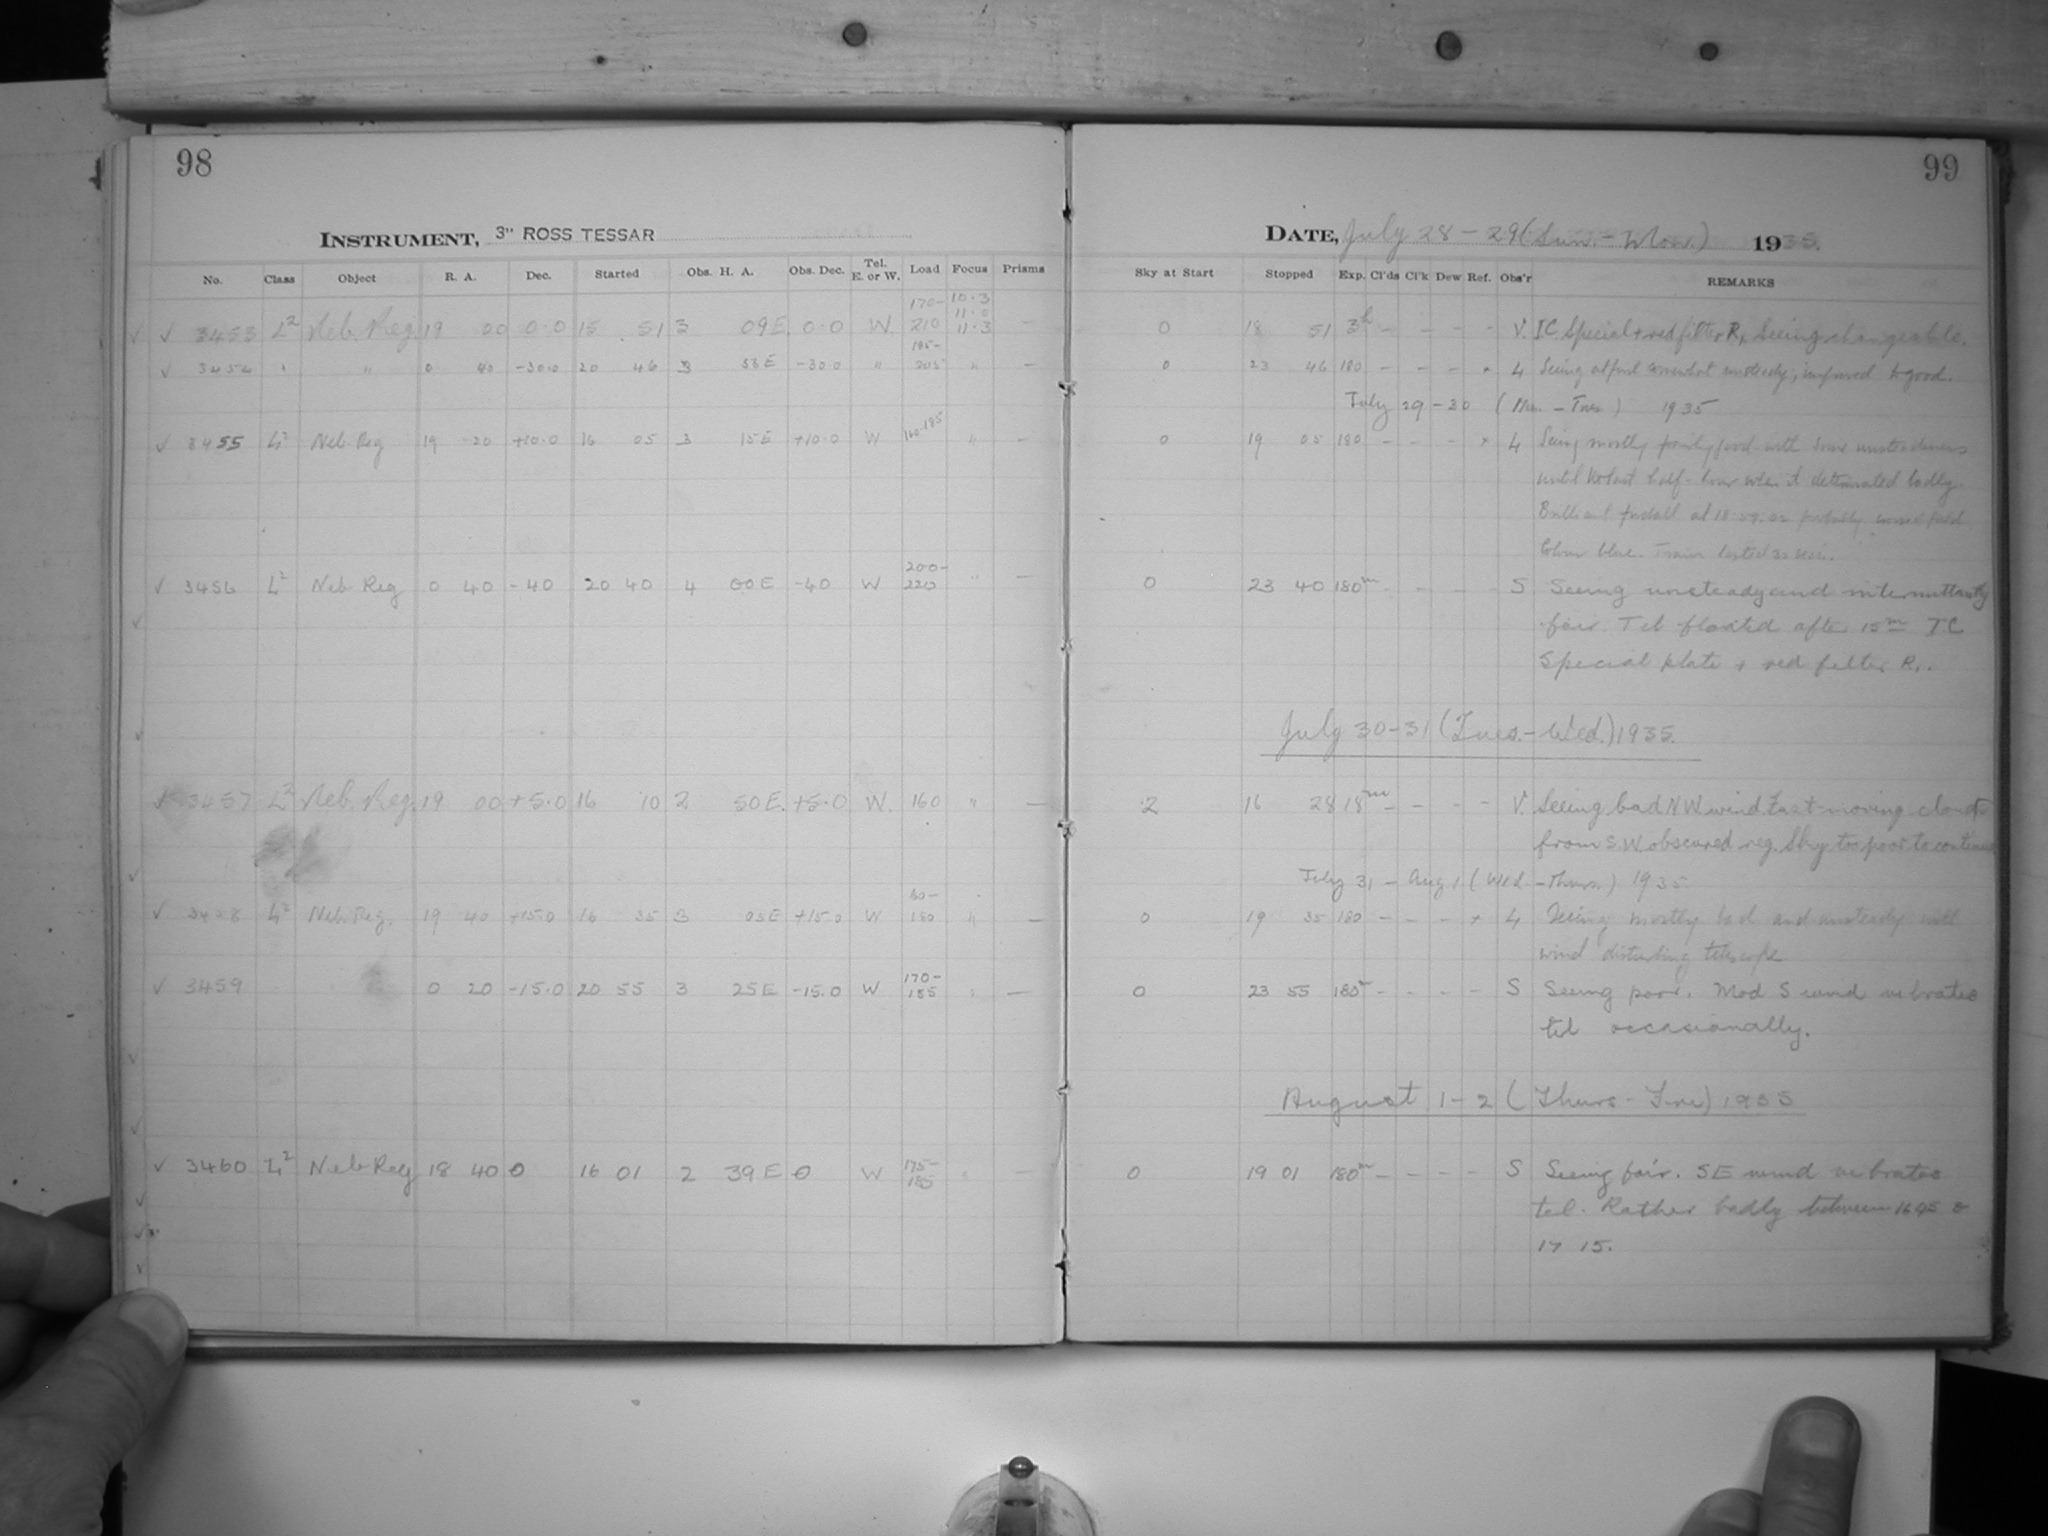 98
INSTRUMENT, 3" ROSS TESSAR
No. Class Object R. A. Dec. Started Obs. H. A. Obs. Dec. Tel. E. or W. Load Focus Prisms
✓ 3453 L² Neb. Reg. 19 00 0.0 15 51 3 09 E. 0.0 W. 170-210 10.3 11.0 11.3 —
✓ 3454 " " 0 40 -30.0 20 46 3 53 E -30.0 " 185-205 " —
✓ 3455 L² Neb. Reg 19 20 +10.0 16 05 3 15 E +10.0 W 160-185 " —
✓ 3456 L² Neb Reg 0 40 -40 20 40 4 00 E -40 W 200-220 " —
✓ 3457 L² Neb. Reg. 19 00 +5.0 16 10 2 50 E. +5.0 W. 160 " —
✓ 3458 L² Neb. Reg. 19 40 +15.0 16 35 3 05 E +15.0 W 180 " —
✓ 3459 0 20 -15.0 20 55 3 25 E -15.0 W 170-185 " —
✓ 3460 L² Neb Reg 18 40 0 16 01 2 39 E 0 W 175-185 " —
99
DATE, July 28-29 (Sun.-Mon.) 1935.
Sky at Start Stopped Exp. Cl'ds Cl'k Dew Ref. Obs'r REMARKS
0 18 51 3h - - - - V. I.C. Special + red filter R, Seeing changeable.
0 23 46 180 - - - 4 Seeing at first somewhat unsteady, improved to good.
July 29-30 (Mon. - Tues) 1935
0 19 05 180 - - - 4 Seeing mostly fairly good with some unsteadiness
until the last half-hour when it deteriorated badly.
Brilliant fireball at 18
Colour blue. Train lasted
0 23 40 180m - - - - S Seeing unsteady and intermittantly
fair. Tel floated after 15m IC
Special plate + red filter R,.
July 30-31 (Tues.-Wed.) 1935.
2 16 28 18m - - - - V. Seeing bad N.W. wind. Fast-moving cloud
from S.W. obscured reg. Sky too poor to continue
July 31 - Aug 1 (Wed - Thurs.) 1935
0 19 35 180 - - - + 4 Seeing mostly bad and unsteady with
wind disturbing telescope
0 23 55 180m - - - - S Seeing poor. Mod S wind vibrates
tel occasionally.
August 1-2 (Thurs - Fri) 1935
0 19 01 180m - - - - S Seeing fair. SE wind vibrates
tel. Rather badly between 16 45 &
17 15.